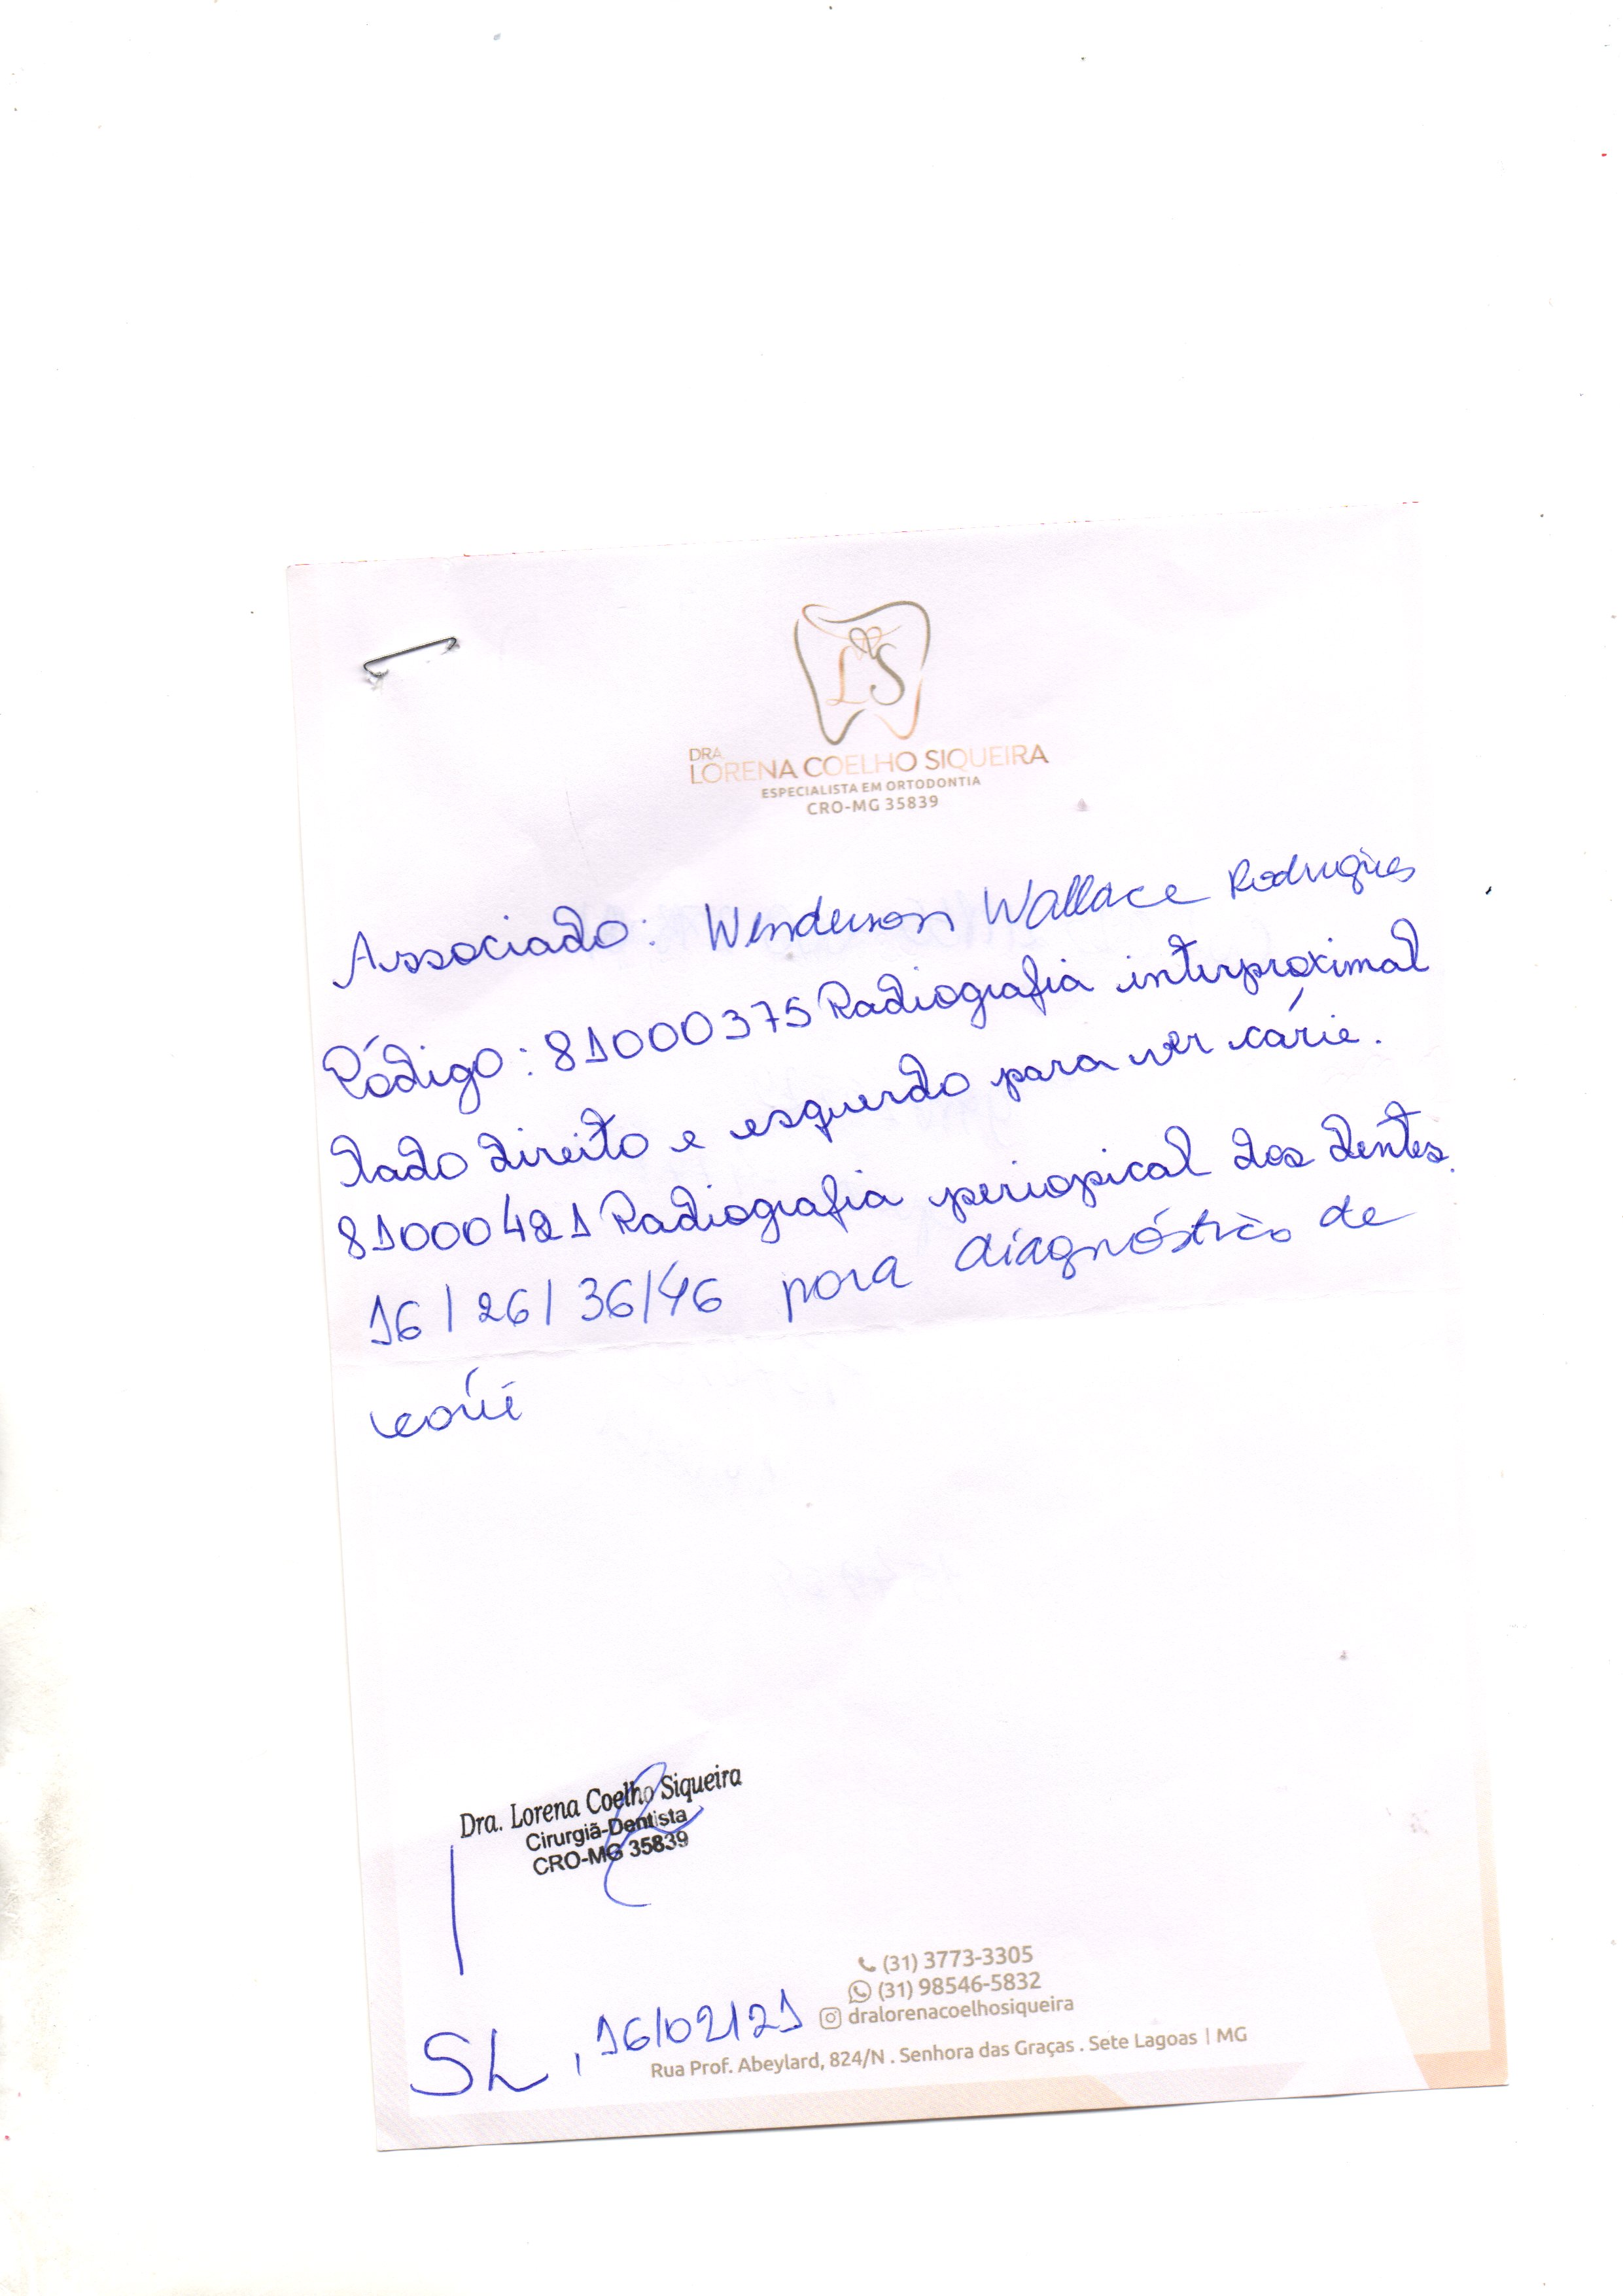 LS
DRA.
LORENA COELHO SIQUEIRA
ESPECIALISTA EM ORTODONTIA
CRO-MG 35839
Associado: Wenderson Wallace Rodrigues
Código: 81000375 Radiografia interproximal
lado direito e esquerdo para ver cárie.
81000421 Radiografia periapical dos dentes
16/26/36/46 para diagnóstico de
cárie
Dra. Lorena Coelho Siqueira
Cirurgiã-Dentista
CRO-MG 35839
(31) 3773-3305
(31) 98546-5832
dralorenacoelhosiqueira
SL, 16/02/21
Rua Prof. Abeylard, 824/N . Senhora das Graças . Sete Lagoas | MG